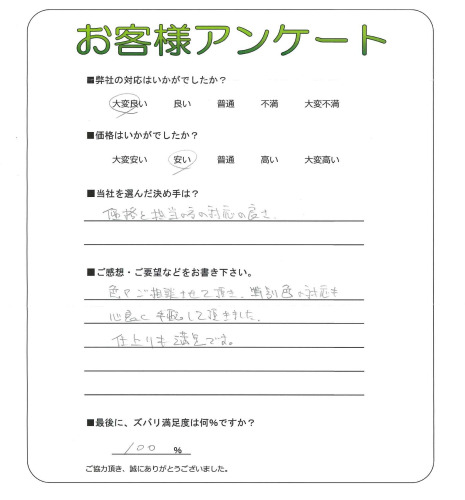 お客様アンケート
■弊社の対応はいかがでしたか？
大変良い 良い 普通 不満 大変不満
■価格はいかがでしたか？
大変安い 安い 普通 高い 大変高い
■当社を選んだ決め手は？
価格と担当の方の対応の良さ、
■ご感想・ご要望などをお書き下さい。
色々ご相談させて頂き、特別色の対応も
心良く手配して頂きました。
仕上りも満足です。
■最後に、ズバリ満足度は何%ですか？
100 %
ご協力頂き、誠にありがとうございました。